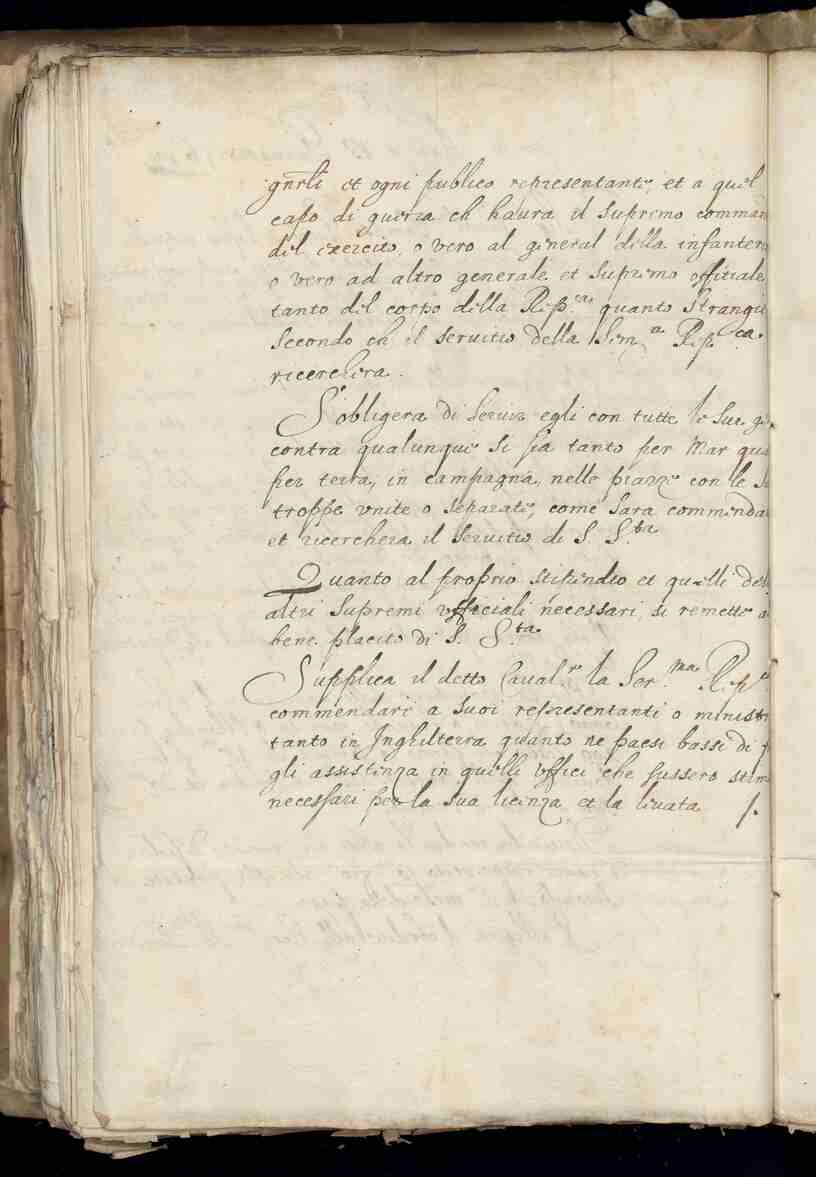 gnrli et ogni publico representante, et a quel
capo di guerra ch haura il supremo comman
del exercito, o vero al general della infanter
o vero ad altro generale et supremo offitiale
tanto del corpo della Rep.ca quanto strangie
secondo ch il servitio della Rep.ca
ricerchera.
S'obligera di servir egli con tutte le sue g
contra qualunque si sia tanto per mar qua
per terra, in campagna, nelle piazze con le su
troppe unite o separate, come sara commenda
et ricerchera il servitio di S. S.ta
Quanto al proprio stipendio et quelli del
altri supremi ufficiali necessari, si remette a
bene placito di S. S.ta
Supplica il detto Caual.re la Ser.ma Rep.ca
commendare a suoi representanti o ministr
tanto in Inghilterra quanto ne paesi bassi di f
gli assistenza in quelli uffici che fussero stim
necessari per la sua licenza et la levata /.